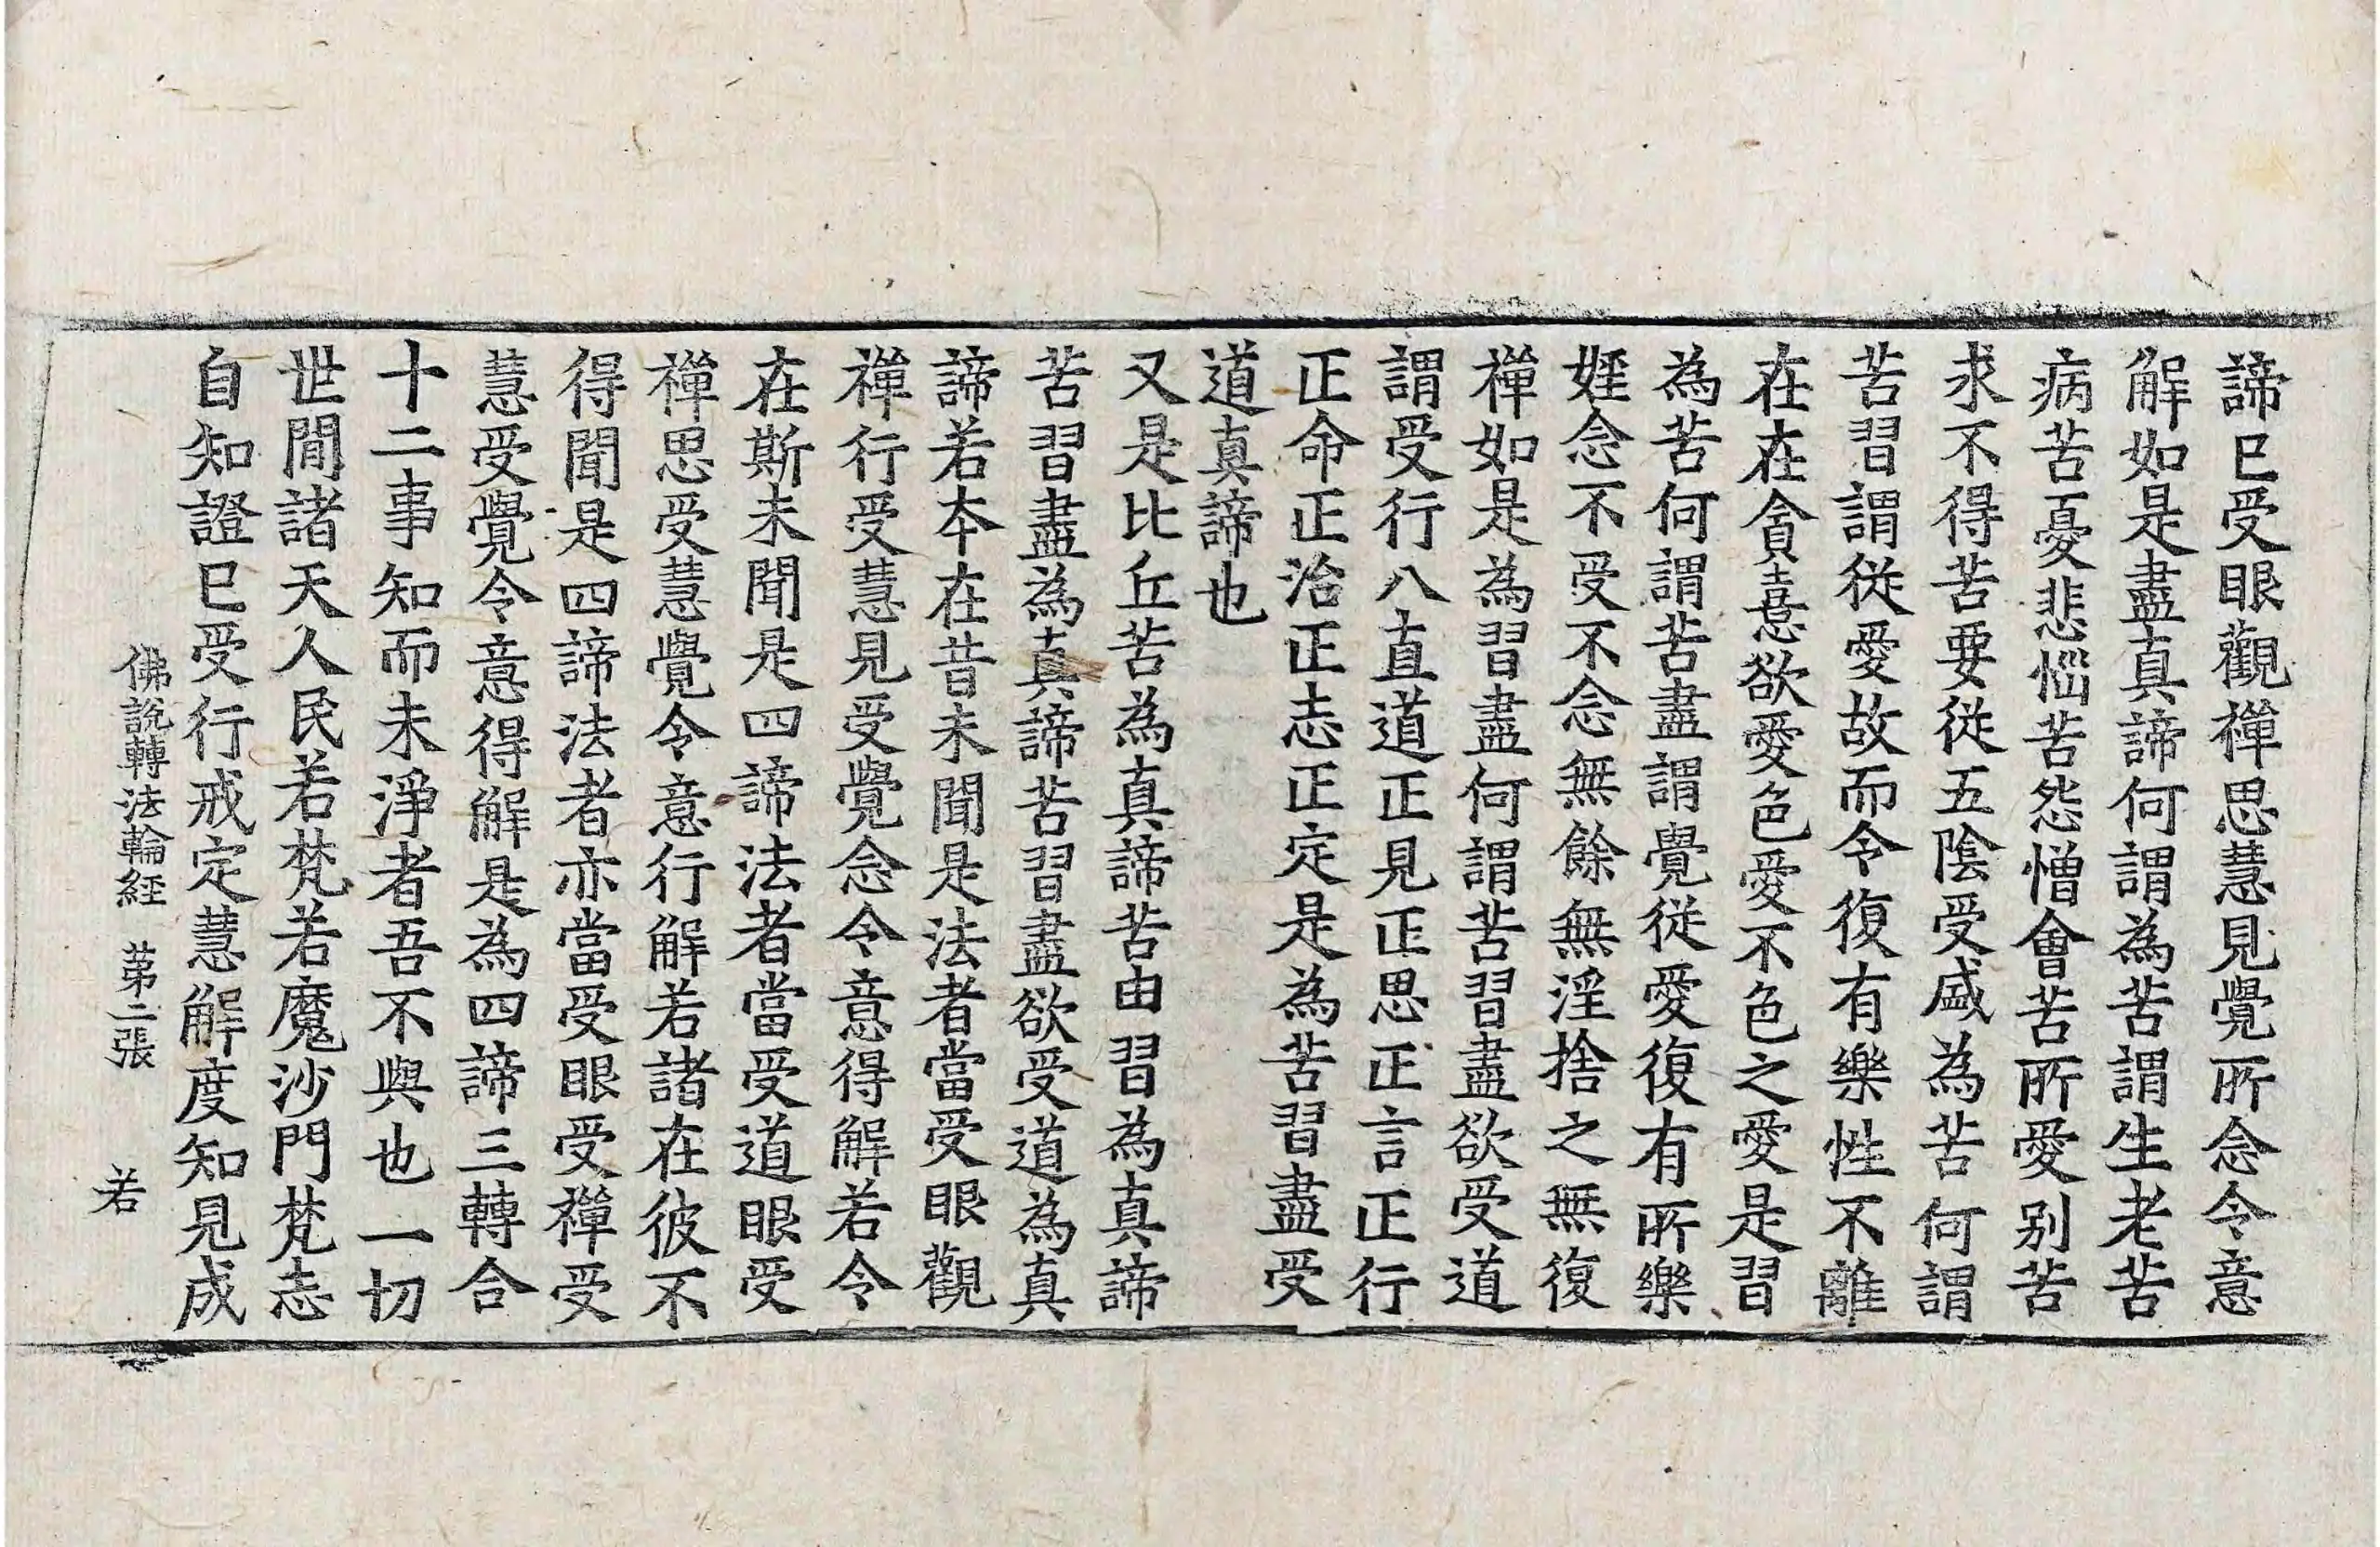 諦已受眼觀禪思慧見覺所念令意
解如是盡真諦何謂為苦謂生老苦
病苦憂悲惱苦怨憎會苦所愛別苦
求不得苦要從五陰受盛為苦何謂
苦習謂從愛故而令復有樂性不離
在在貪憙欲愛色愛不色之愛是習
為苦何謂苦盡謂覺從愛復有所樂
婬念不受不念無餘無淫捨之無復
禪如是為習盡何謂苦習盡欲受道
謂受行八直道正見正思正言正行
正命正治正志正定是為苦習盡受
道真諦也
又是比丘苦為真諦苦由習為真諦
苦習盡為真諦苦習盡欲受道為真
諦若本在昔未聞是法者當受眼觀
禪行受慧見受覺念令意得解若令
在斯未聞是四諦法者當受道眼受
禪思受慧覺令意行解若諸在彼不
得聞是四諦法者亦當受眼受禪受
慧受覺令意得解是為四諦三轉合
十二事知而未淨者吾不與也一切
世閒諸天人民若梵若魔沙門梵志
自知證已受行戒定慧解度知見成
佛說轉法輪經 苐二張 若